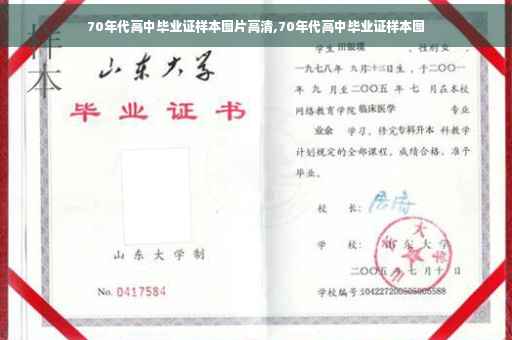 70年代高中毕业证样本图片高清,70年代高中毕业证样本图
样本
山东大学
毕业证书
山东大学制
No. 0417584
学生 田银瑞 ，性别女，
一九七八年 九月十三日生，于二〇〇一
年 九 月至二〇〇五 年 七 月在本校
网络教育学院 临床医学 专业
业余 学习，修完专科升本 科教学
计划规定的全部课程，成绩合格，准予
毕业。
校 长：
学 校：山东大学
二〇〇五 年 七 月 十 日
学校编号：104227200505005588